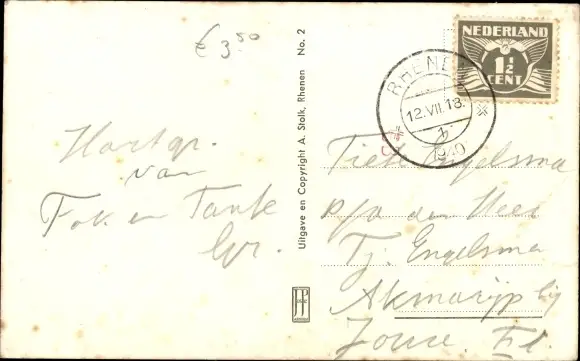 € 3.50
Hart gr.
van
Fok en Tante
Gr.
Uitgave en Copyright A. Stolk, Rhenen No. 2
NEDERLAND
1½
CENT
RHENEN
12.VII.18.
1940
Engelsma
p/a den Heer
Tj. Engelsma
Akmarijp bij
Joure. Fr.